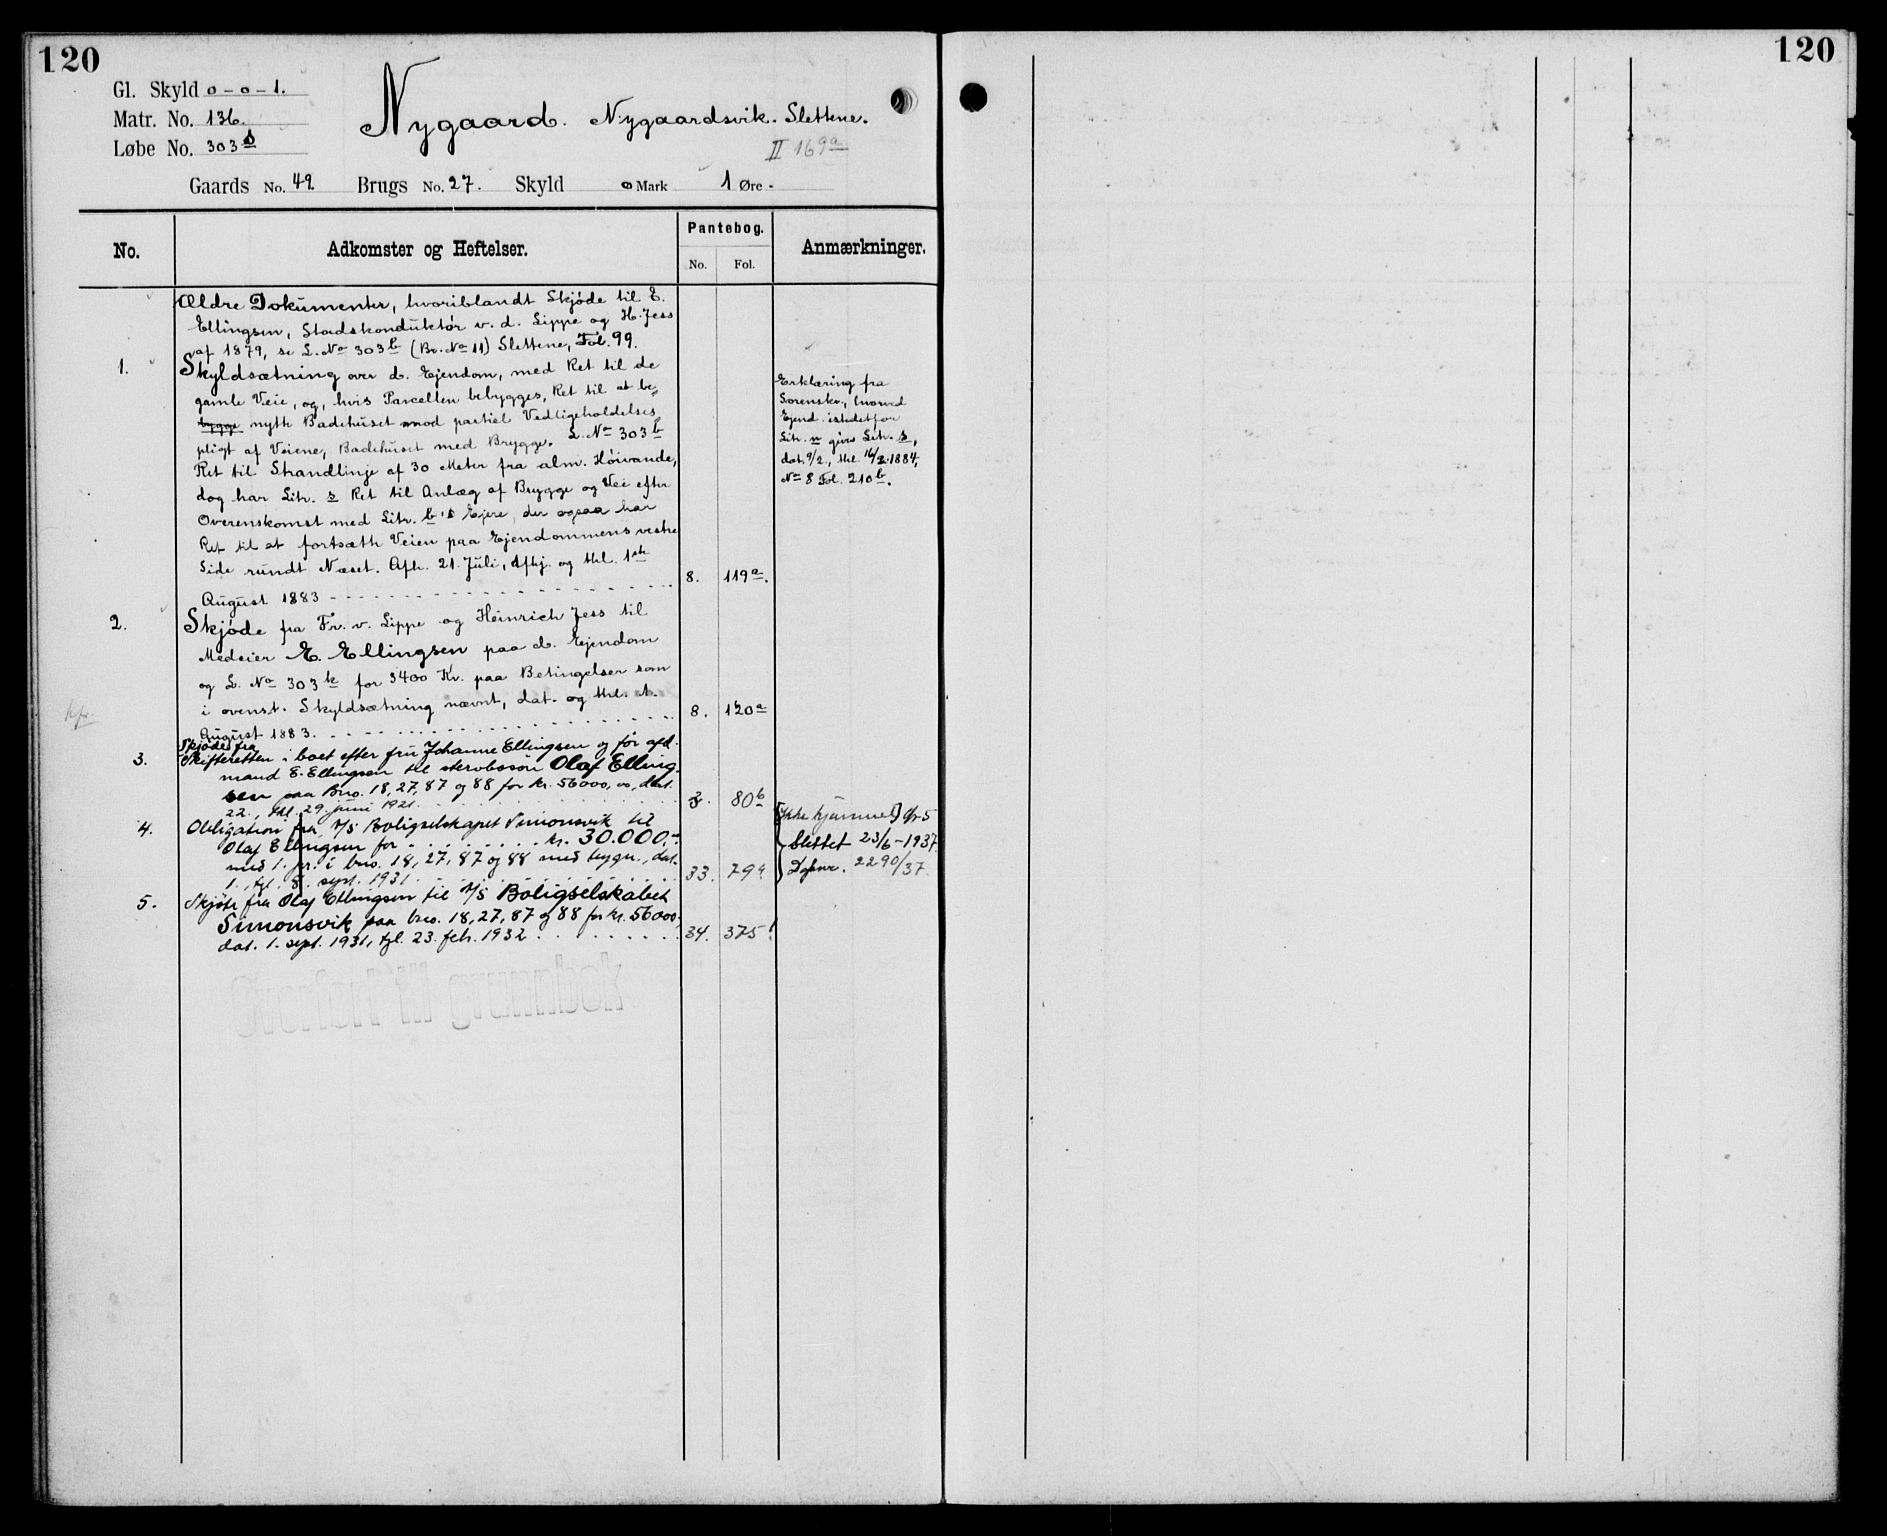 120
Gl. Skyld 0-0-1.
Matr. No. 136.
Løbe No. 303 s
Nygaard. Nygaardsvik. Slettene.
II 169a
Gaards No. 49 Brugs No. 27. Skyld 0 Mark 1 Øre.
No.
Adkomster og Heftelser.
Pantebog.
No. Fol.
Anmærkninger.
Ældre Dokumenter, hvoriblandt Skjøde til E.
Ellingsen, Stadskonduktør v. d. Lippe og H. Jess
af 1879, se L. No 303 b (Br. No 11) Slettene, Fol. 99.
1. Skyldsætning over d. Ejendom, med Ret til de
gamle Veie, og, hvis Parcellen bebygges, Ret til at be-
bygge nytte Badehuset mod partiel Vedligeholdelses
pligt af Veiene, Badehuset med Brygge. L. No 303 b
Ret til Strandlinje af 30 Meter fra alm. Høivande,
dog har Litr. s Ret til Anlæg af Brygge og Vei efter
Overenskomst med Litr. b's Ejere, der ogsaa har
Ret til at fortsætte Veien paa Ejendommens vestre
Side rundt Næset. Afh. 21. Juli, afhj. og thl. 1ste
August 1883 8. 119a.
Erklæring fra
Sorenskr., hvorved
Ejend. istedetfor
Litr. n gives Litr. s,
dat. 9/2, thl. 16/2. 1884,
No 8 Fol. 210 b.
2. Skjøde fra Fr. v. Lippe og Heinrich Jess til
Medeier E. Ellingsen paa d. Ejendom
og L. No 303 k for 3400 Kr. paa Betingelser som
i ovenst. Skyldsætning nævnt, dat. og thl. 1.
August 1883. 8. 120a
3. Skjøde fra
Skifteretten i boet efter fru Johanne Ellingsen og før afd.
mand E. Ellingsen til stervbosøn Olaf Elling-
sen paa Brno. 18, 27, 87 og 88 for kr. 56000,00, dat.
22., thl. 29. juni 1921. 80b
4. Obligation fra A/S Boligselskapet Simonsvik til
Olaf Ellingsen for kr. 30.000,-
med 1. pr. i bno. 18, 27, 87 og 88 med bygn., dat.
1., tgl. 8. sept. 1931 33. 79
[Ikke hjemmel]
Slettet 23/6-1937.
Dagbnr. 2290/37
5. Skjøte fra Olaf Ellingsen til A/S Boligselskabet
Simonsvik paa bno. 18, 27, 87 og 88 for kr. 56000,
dat. 1. sept. 1931, tgl. 23. feb. 1932 34. 375
Overført til grunnbok
120